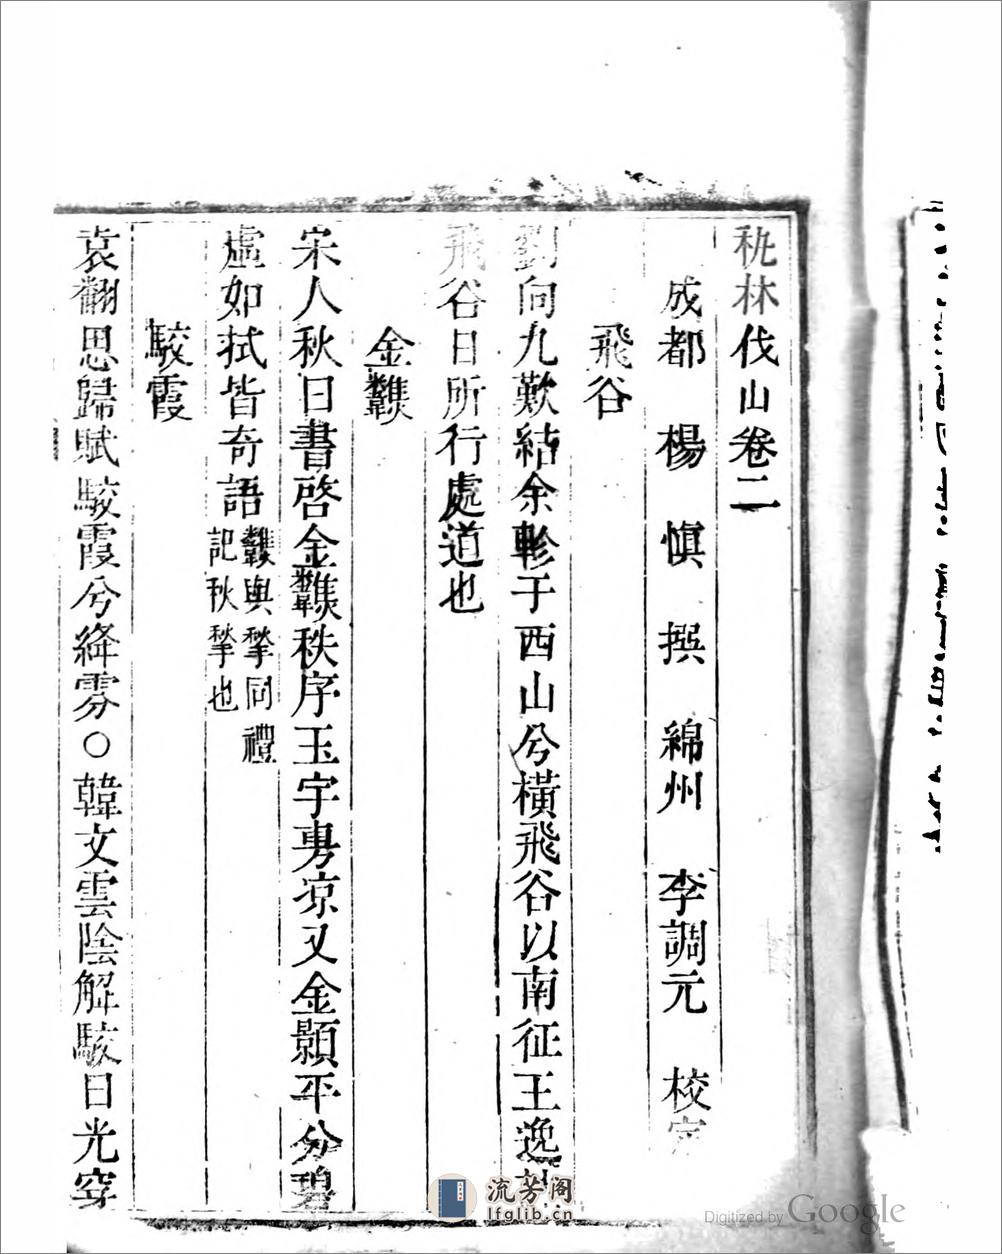 秇林伐山卷二
成都 楊 慎 撰 綿州 李調元 校
飛谷
劉向九歎結余軫于西山兮橫飛谷以南征王逸
飛谷日所行處道也
金虆
宋人秋日書啓金虆秩序玉宇旉凉又金顥平分碧
虛如拭皆奇語
與揫同禮
記秋揫也
駮霞
袁翻思歸賦駮霞兮絳雰○韓文雲陰解駮日光穿
流芳阁
lfglib.cn
Digitized by Google